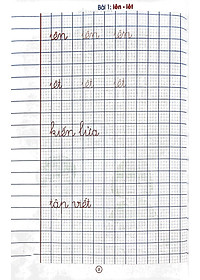 Bài 1: iên - iêt
iên iên iên
iêt iêt iêt
kiến lửa
viết